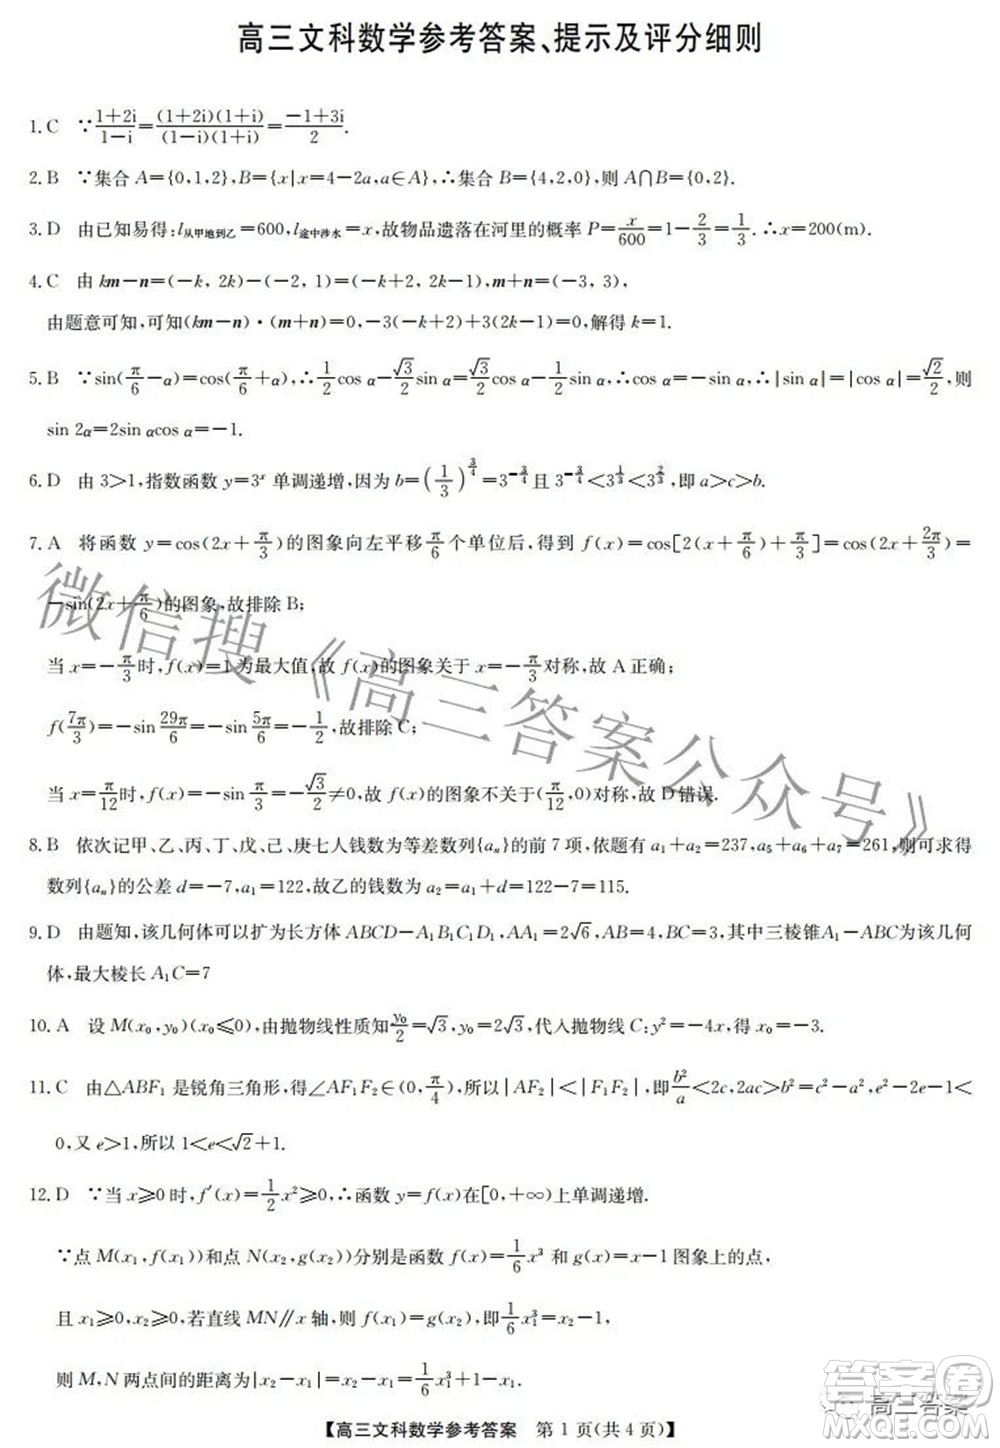 高三文科数学参考答案、提示及评分细则
1. C ∵(1+2i)/(1−i)=(1+2i)(1+i)/(1−i)(1+i)=(−1+3i)/2.
2. B ∵集合 A={0,1,2},B={x|x=4−2a,a∈A},∴集合 B={4,2,0},则 A∩B={0,2}.
3. D 由已知易得:l从甲地到乙=600,l途中涉水=x,故物品遗落在河里的概率 P=x/600=1−2/3=1/3.∴x=200(m).
4. C 由 km−n=(−k, 2k)−(−2, 1)=(−k+2, 2k−1),m+n=(−3, 3),
由题意可知,可知(km−n)·(m+n)=0,−3(−k+2)+3(2k−1)=0,解得 k=1.
5. B ∵sin(π/6−α)=cos(π/6+α),∴1/2cos α−√3/2sin α=√3/2cos α−1/2sin α,∴cos α=−sin α,∴|sin α|=|cos α|=√2/2,则
sin 2α=2sin αcos α=−1.
6. D 由 3>1,指数函数 y=3^x 单调递增,因为 b=(1/3)^(3/4)=3^(−3/4)且 3^(−3/4)<3^(1/3)<3^(2/3),即 a>c>b.
7. A 将函数 y=cos(2x+π/3)的图象向左平移π/6个单位后,得到 f(x)=cos[2(x+π/6)+π/3]=cos(2x+2π/3)=
−sin(2x+π/6)的图象,故排除 B;
当 x=−π/3时,f(x)=1为最大值,故 f(x)的图象关于 x=−π/3对称,故 A 正确;
f(7π/3)=−sin29π/6=−sin5π/6=−1/2,故排除 C;
当 x=π/12时,f(x)=−sinπ/3=−√3/2≠0,故 f(x)的图象不关于(π/12,0)对称,故 D 错误.
8. B 依次记甲、乙、丙、丁、戊、己、庚七人钱数为等差数列{aₙ}的前 7 项,依题有 a₁+a₂=237,a₅+a₆+a₇=261,则可求得
数列{aₙ}的公差 d=−7,a₁=122,故乙的钱数为 a₂=a₁+d=122−7=115.
9. D 由题知,该几何体可以扩为长方体 ABCD−A₁B₁C₁D₁,AA₁=2√6,AB=4,BC=3,其中三棱锥A₁−ABC为该几何
体,最大棱长 A₁C=7
10. A 设 M(x₀,y₀)(x₀≤0),由抛物线性质知y₀/2=√3,y₀=2√3,代入抛物线 C:y²=−4x,得 x₀=−3.
11. C 由△ABF₁ 是锐角三角形,得∠AF₁F₂∈(0,π/4),所以|AF₂|<|F₁F₂|,即b²/a<2c,2ac>b²=c²−a²,e²−2e−1<
0,又 e>1,所以 1<e<√2+1.
12. D ∵当 x≥0 时,f′(x)=1/2x²≥0,∴函数 y=f(x)在[0,+∞)上单调递增.
∵点 M(x₁,f(x₁))和点 N(x₂,g(x₂))分别是函数 f(x)=1/6x³ 和 g(x)=x−1 图象上的点,
且 x₁≥0,x₂≥0,若直线 MN∥x 轴,则 f(x₁)=g(x₂),即1/6x₁³=x₂−1,
则 M,N 两点间的距离为|x₂−x₁|=x₂−x₁=1/6x₁³+1−x₁.
【高三文科数学参考答案 第 1 页(共 4 页)】
微信搜《高三答案公众号》
高三答案
答案圈
MXQE.COM